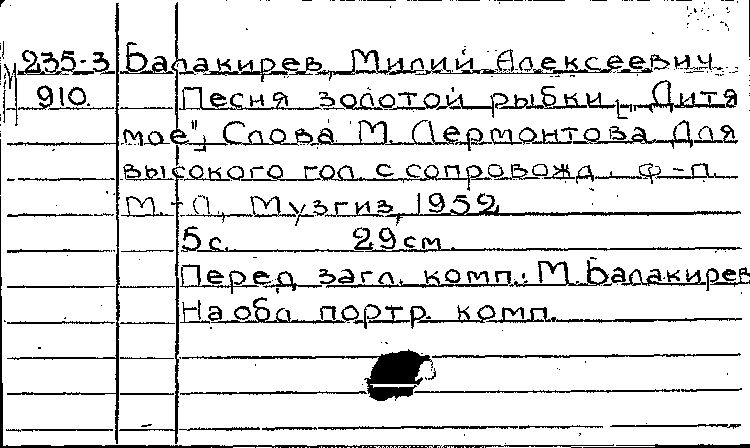 235-3 Балакирев, Милий Алексеевич.
910. Песня золотой рыбки [„Дитя
мое"] Слова М. Лермонтова Для
высокого гол. с сопровожд. ф-п.
М.-Л., Музгиз, 1952
5 с. 29 см.
Перед загл. комп.: М. Балакирев
На обл портр. комп.